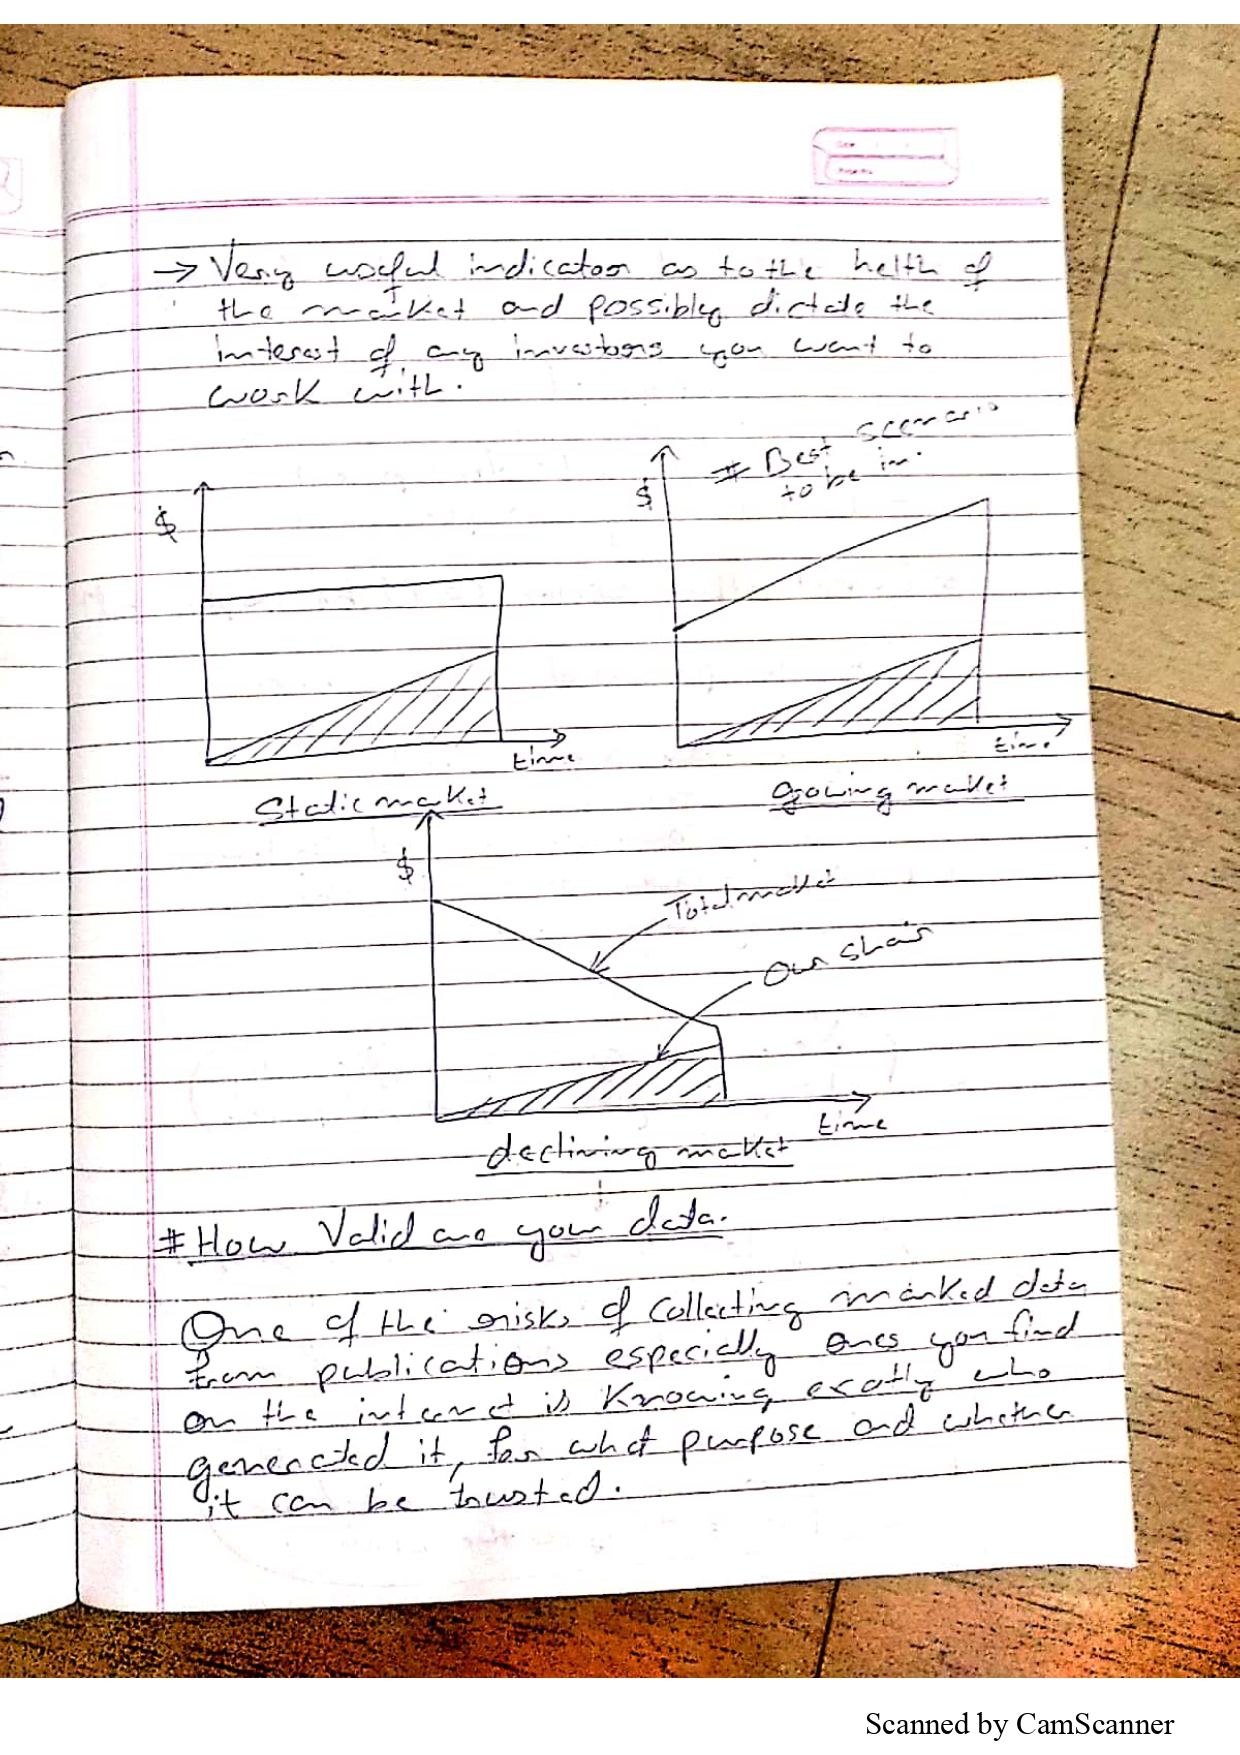 Date
Page No.
→ Very useful indicator as to the helth of
the market and possibly dictate the
interest of any investors you want to
work with.
# Best scenario
to be in.
$
$
time
time
Static market
Gowing market
$
Total market
Our Shair
time
declining market
# How Valid are your data.
One of the risks of Collecting marked data
from publications especially ones you find
on the internet is Knowing exatly who
generated it, for what purpose and whether
it can be trusted.
Scanned by CamScanner